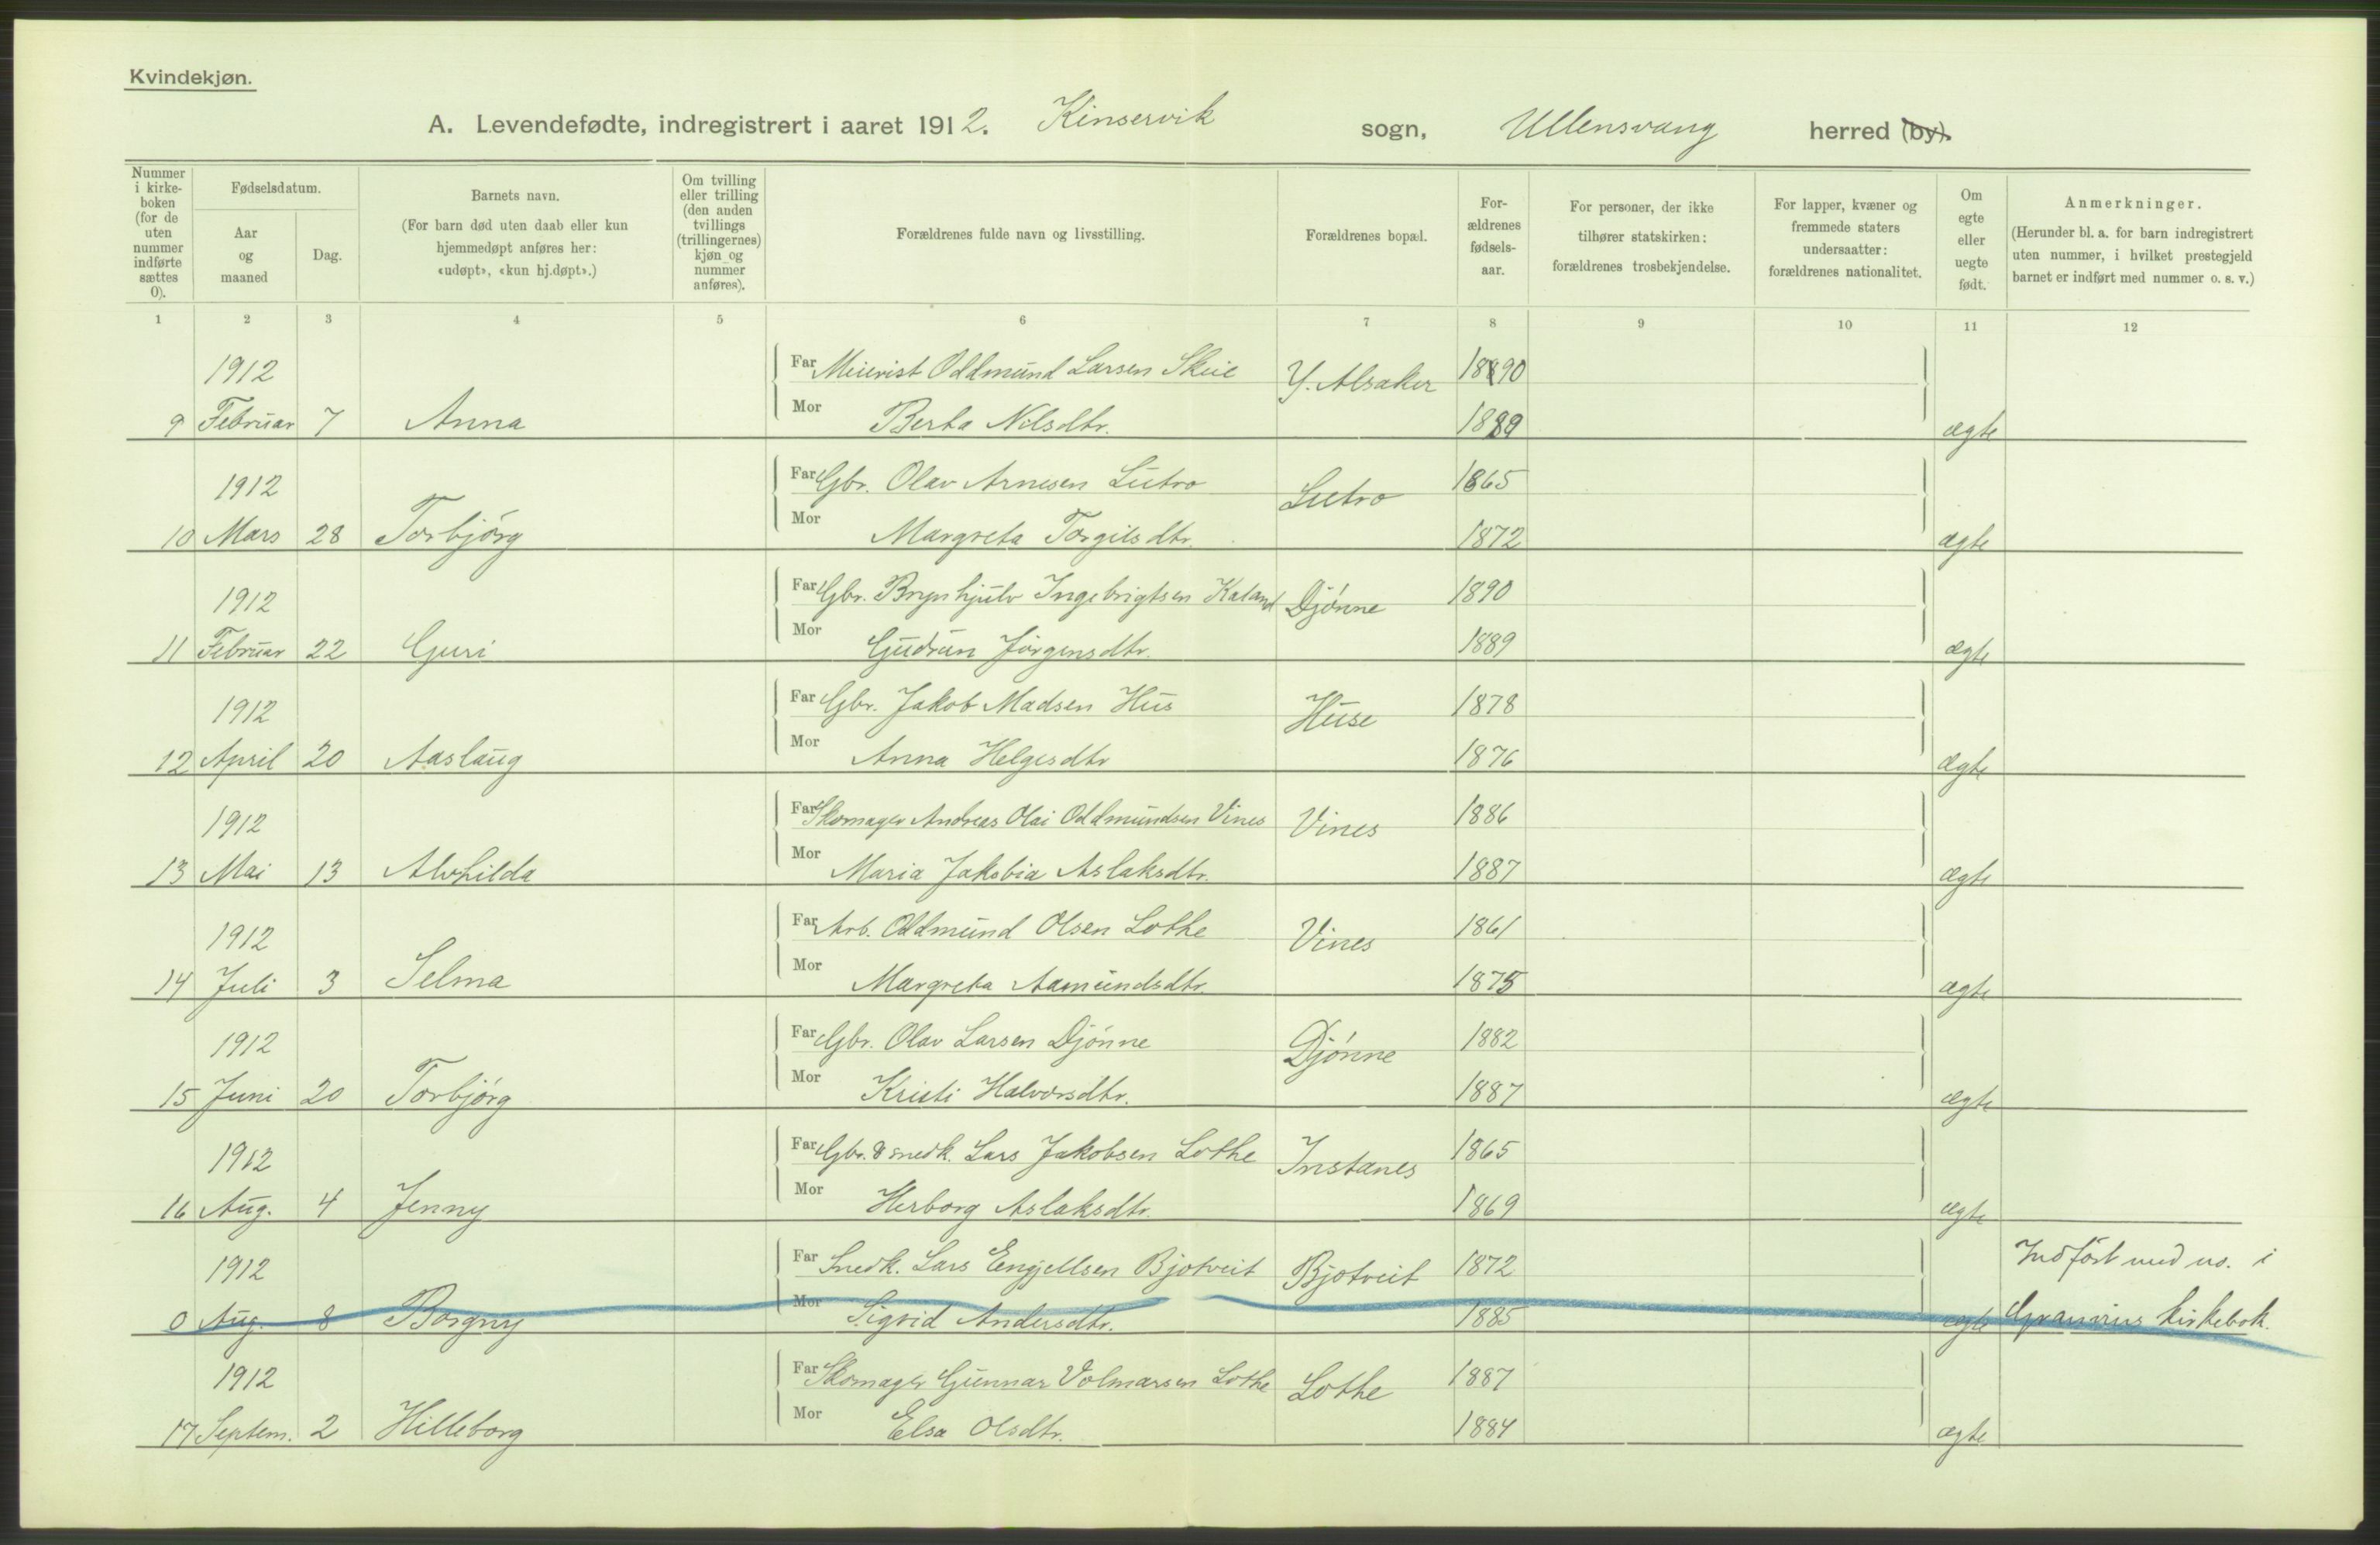 Kvindekjøn.
A. Levendefødte, indregistrert i aaret 1912. Kinservik sogn, Ullensvang herred (by).
Nummer i kirke-boken (for de uten nummer indførte sættes 0).
Fødselsdatum.
Aar og maaned
Dag.
Barnets navn.
(For barn død uten daab eller kun hjemmedøpt anføres her: «udøpt», «kun hj.døpt».)
Om tvilling eller trilling (den anden tvillings (trillingernes) kjøn og nummer anføres).
Forældrenes fulde navn og livsstilling.
Forældrenes bopæl.
For-ældrenes fødsels-aar.
For personer, der ikke tilhører statskirken: forældrenes trosbekjendelse.
For lapper, kvæner og fremmede staters undersaatter: forældrenes nationalitet.
Om egte eller uegte født.
Anmerkninger.
(Herunder bl. a. for barn indregistrert uten nummer, i hvilket prestegjeld barnet er indført med nummer o. s. v.)
1 2 3 4 5 6 7 8 9 10 11 12
1912 Far Meierist Oddmund Larsen Skeie Y. Alsaker 1890
9 Februar 7 Anna Mor Berta Nilsdtr. 1889 ægte
1912 Far Gbr. Olav Arnesen Lutro Lutro 1865
10 Mars 28 Torbjörg Mor Margreta Torgilsdtr. 1872 ægte
1912 Far Gbr. Brynhjulv Ingebrigtsen Kaland Djönne 1890
11 Februar 22 Guri Mor Gudrun Jörgensdtr. 1889 ægte
1912 Far Gbr. Jakob Madsen Hus Huse 1878
12 April 20 Aaslaug Mor Anna Helgesdtr 1876 ægte
1912 Far Skomager Andreas Olai Oddmundsen Vines Vines 1886
13 Mai 13 Alvhilda Mor Maria Jakobia Aslaksdtr. 1887 ægte
1912 Far Arb. Oddmund Olsen Lothe Vines 1861
14 Juli 3 Selma Mor Margreta Aamundsdtr. 1875 ægte
1912 Far Gbr. Olav Larsen Djönne Djönne 1882
15 Juni 20 Torbjörg Mor Kristi Halvorsdtr. 1887 ægte
1912 Far Gbr. & snedk. Lars Jakobsen Lothe Instanes 1865
16 Aug. 4 Jenny Mor Herborg Aslaksdtr. 1869 ægte
1912 Far Snedk. Lars Engjellsen Bjotveit Bjotveit 1872 Indfört med no. i
0 Aug. 8 Borgny Mor Sigrid Andersdtr. 1885 ægte Granvins kirkebok.
1912 Far Skomager Gunnar Volmarsen Lothe Lothe 1887
17 Septem. 2 Hilleborg Mor Elsa Olsdtr. 1884 ægte